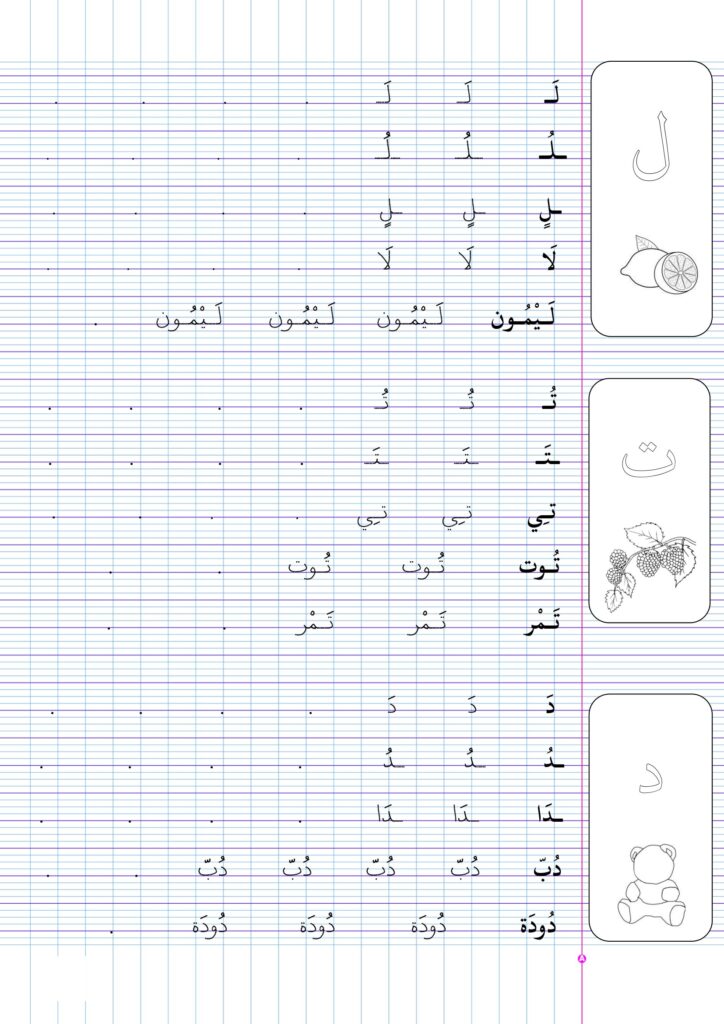 ل
لَـ لَـ لَـ . . . .
ـلُـ ـلُـ ـلُـ . . . . .
ـلٍ ـلٍ ـلٍ . . . .
لَا لَا لَا . . . .
لَـيْمُـون لَـيْمُـون لَـيْمُـون لَـيْمُـون .
ت
تُـ تُـ تُـ . . . .
ـتَـ ـتَـ ـتَـ . . . .
تـِي تـِي تـِي . . . .
تُـوت تُـوت تُـوت . .
تَـمْر تَـمْر تَـمْر . .
د
دَ دَ دَ . . . .
ـدُ ـدُ ـدُ . . . .
ـدَا ـدَا ـدَا . . . .
دُبّ دُبّ دُبّ دُبّ دُبّ . .
دُودَة دُودَة دُودَة دُودَة .